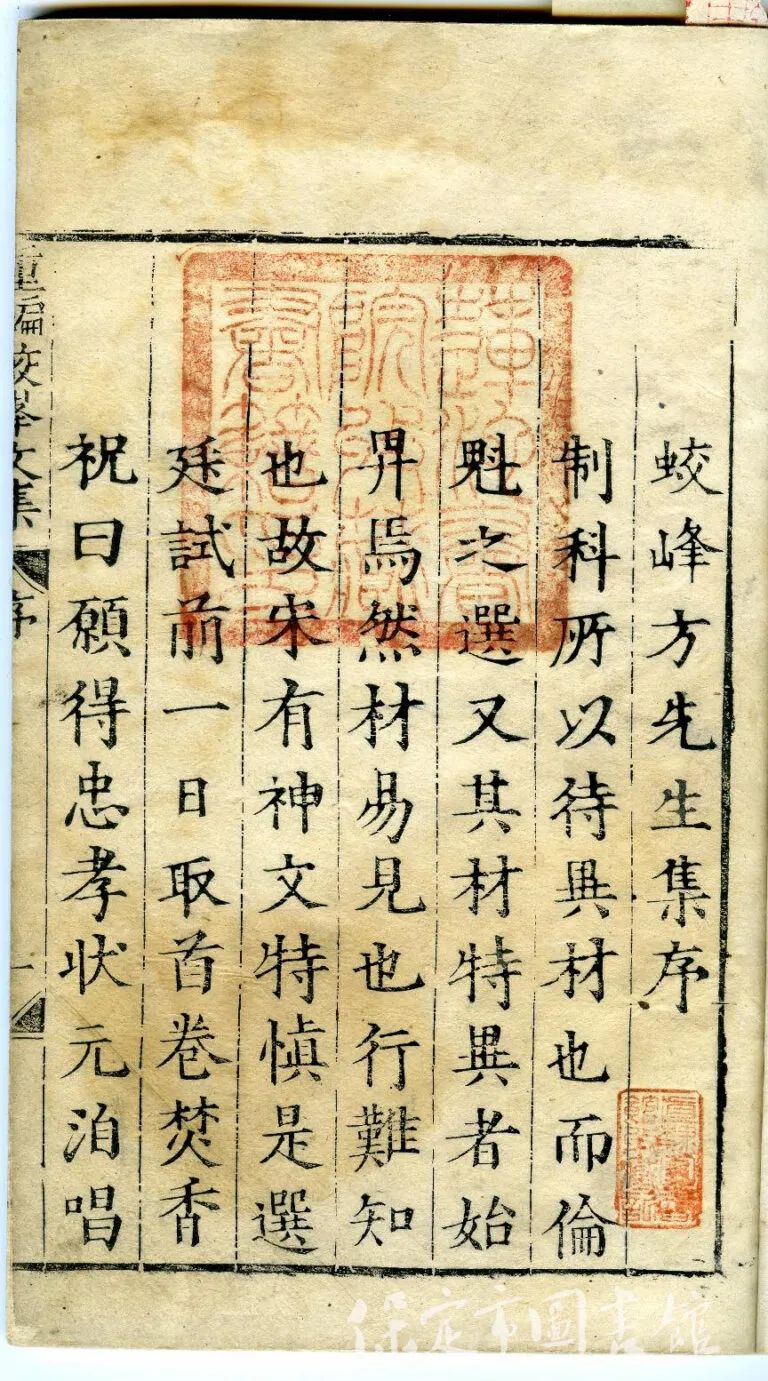 蛟峰方先生集序
制科所以待異材也而倫
魁之選又其材特異者始
畀焉然材易見也行難知
也故宋有神文特慎是選
廷試前一日取首卷焚香
祝曰願得忠孝狀元洎唱
重編蛟峯文集
序
一
保定市圖書館